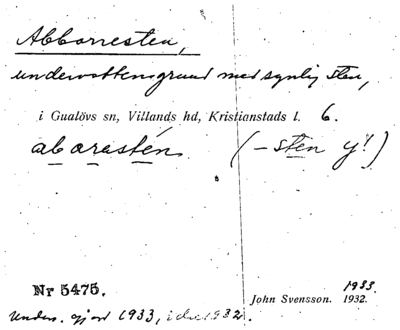 Abborresten,
undervattensgrund med synlig sten,
i Gualövs sn, Villands hd, Kristianstads l. 6.
abarestén (-sten y!)
Nr 5475.
1933.
John Svensson. 1932.
Unders. gjord 1933, i d:o 1932.